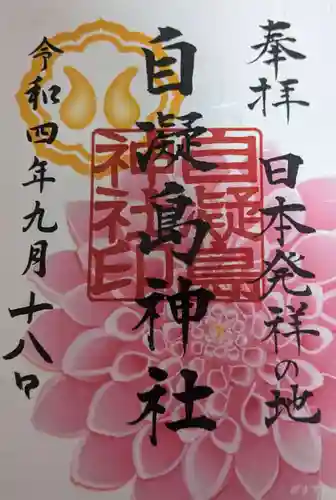 奉拝
日本発祥の地
自凝島神社
自凝島
神社印
令和四年九月十八日